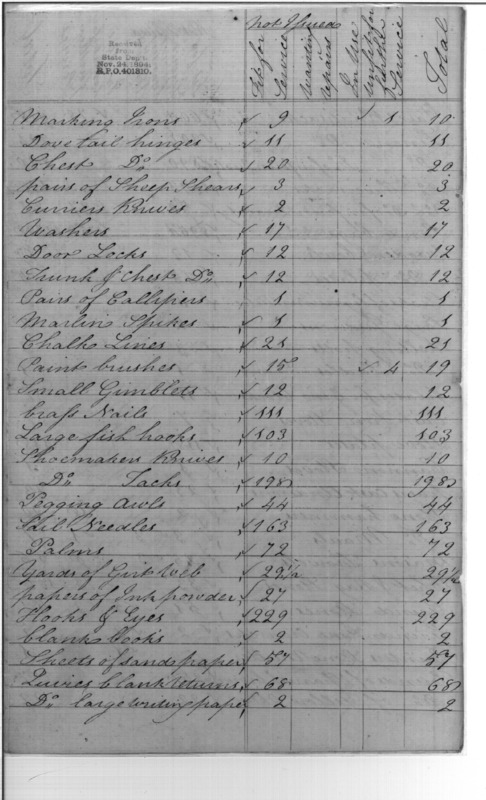 Received
from
State Dept.
Nov. 24, 1894,
R.P.O. 401810.
Not Issued
Fit for Service
Wanting repairs
In Use
unfit for
Service
Total
Marking Irons 9 1 10
Dove tail hinges 11 11
Chest Do 20 20
pairs of Sheep Shears 3 3
Curriers Knives 2 2
Washers 17 17
Door Locks 12 12
Trunk & Chest Do 12 12
Pairs of Callipers 1 1
Marlin Spikes 1 1
Chalk Lines 21 21
Paint brushes 15 4 19
Small Gimblets 12 12
brass Nails 111 111
Large fish hooks 103 103
Shoemakers Knives 10 10
Do Tacks 198 198
Pegging Awls 44 44
Sail Needles 163 163
Palms 72 72
Yards of Girt Web 29½ 29½
papers of Ink powder 27 27
Hooks & Eyes 229 229
blank books 2 2
Sheets of sand paper 57 57
Quires blank returns 68 68
Do large writing pape 2 2